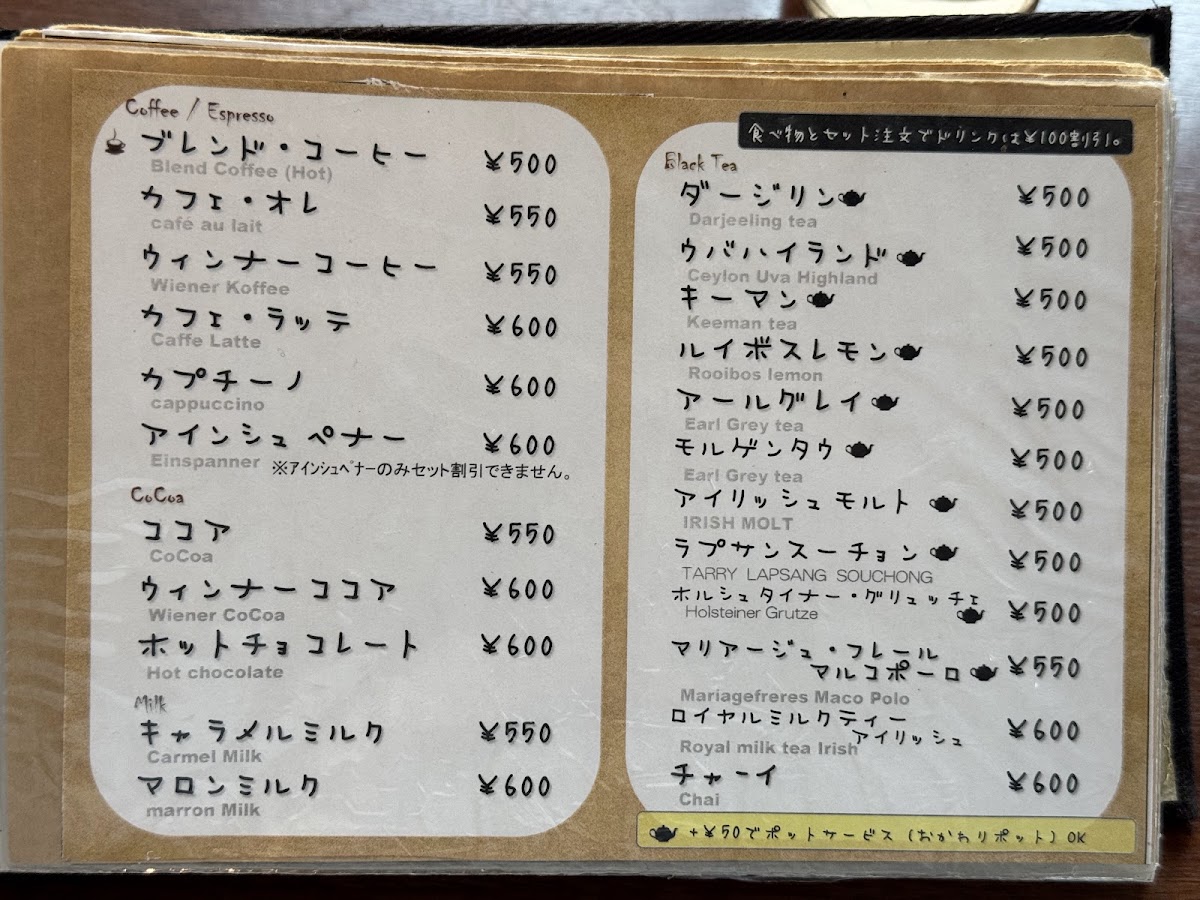 Coffee / Espresso
ブレンド・コーヒー ¥500
Blend Coffee (Hot)
カフェ・オレ ¥550
café au lait
ウィンナーコーヒー ¥550
Wiener Koffee
カフェ・ラッテ ¥600
Caffe Latte
カプチーノ ¥600
cappuccino
アインシュペナー ¥600
Einspanner ※アインシュペナーのみセット割引できません。
CoCoa
ココア ¥550
CoCoa
ウィンナーココア ¥600
Wiener CoCoa
ホットチョコレート ¥600
Hot chocolate
Milk
キャラメルミルク ¥550
Carmel Milk
マロンミルク ¥600
marron Milk
食べ物とセット注文でドリンクは¥100割引。
Black Tea
ダージリン ¥500
Darjeeling tea
ウバハイランド ¥500
Ceylon Uva Highland
キーマン ¥500
Keeman tea
ルイボスレモン ¥500
Rooibos lemon
アールグレイ ¥500
Earl Grey tea
モルゲンタウ ¥500
Earl Grey tea
アイリッシュモルト ¥500
IRISH MOLT
ラプサンスーチョン ¥500
TARRY LAPSANG SOUCHONG
ホルシュタイナー・グリュッチェ
Holsteiner Grutze ¥500
マリアージュ・フレール
マルコポーロ ¥550
Mariagefreres Maco Polo
ロイヤルミルクティー
アイリッシュ ¥600
Royal milk tea Irish
チャーイ ¥600
Chai
+¥50でポットサービス(おかわりポット)OK